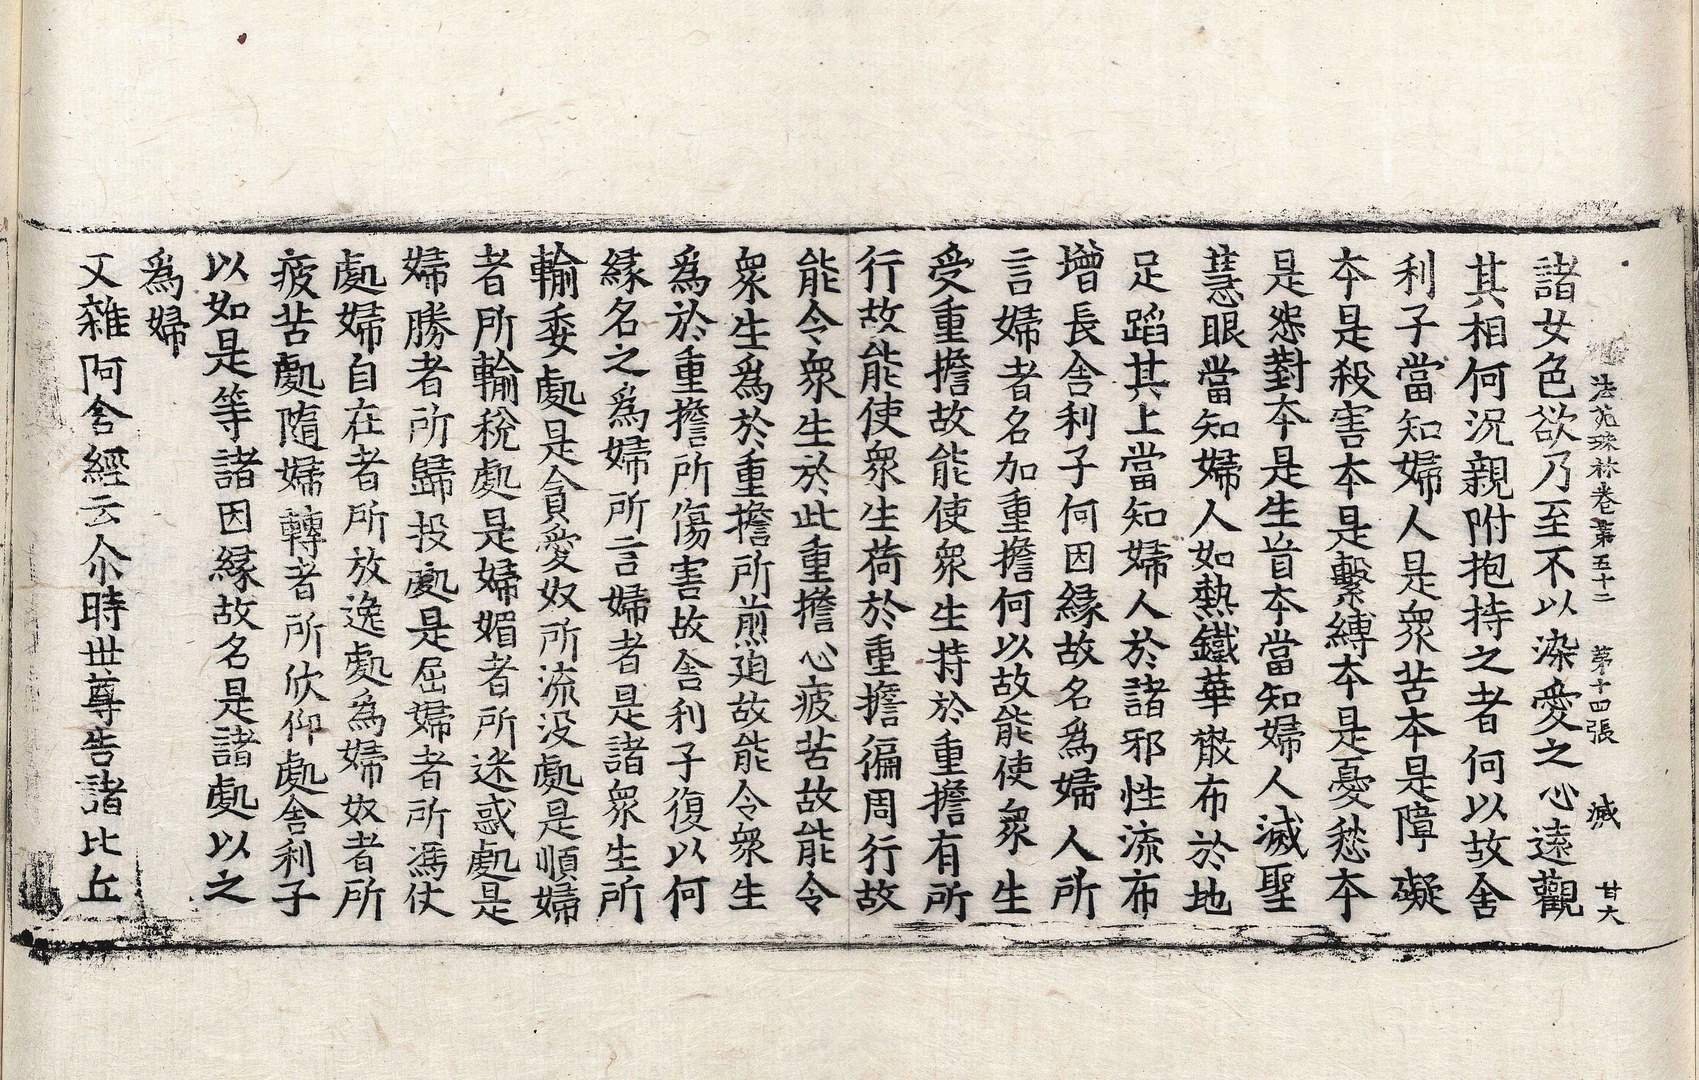 法苑珠林卷第五十二 第十四張 滅 甘大
諸女色欲乃至不以染愛之心遠觀
其相何況親附抱持之者何以故舍
利子當知婦人是衆苦本是障礙
本是殺害本是繫縛本是憂愁本
是怨對本是生首本當知婦人滅聖
慧眼當知婦人如熱鐵華散布於地
足蹈其上當知婦人於諸邪性流布
增長舍利子何因緣故名爲婦人所
言婦者名加重擔何以故能使衆生
受重擔故能使衆生持於重擔有所
行故能使衆生荷於重擔徧周行故
能令衆生於此重擔心疲苦故能令
衆生爲於重擔所煎迫故能令衆生
爲於重擔所傷害故舍利子復以何
緣名之爲婦所言婦者是諸衆生所
輸委處是貪愛奴所流没處是順婦
者所輸稅處是婦媚者所迷惑處是
婦勝者所歸投處是屈婦者所馮仗
處婦自在者所放逸處爲婦奴者所
疲苦處隨婦轉者所欣仰處舍利子
以如是等諸因緣故名是諸處以之
爲婦
又雜阿含經云尒時世尊告諸比丘